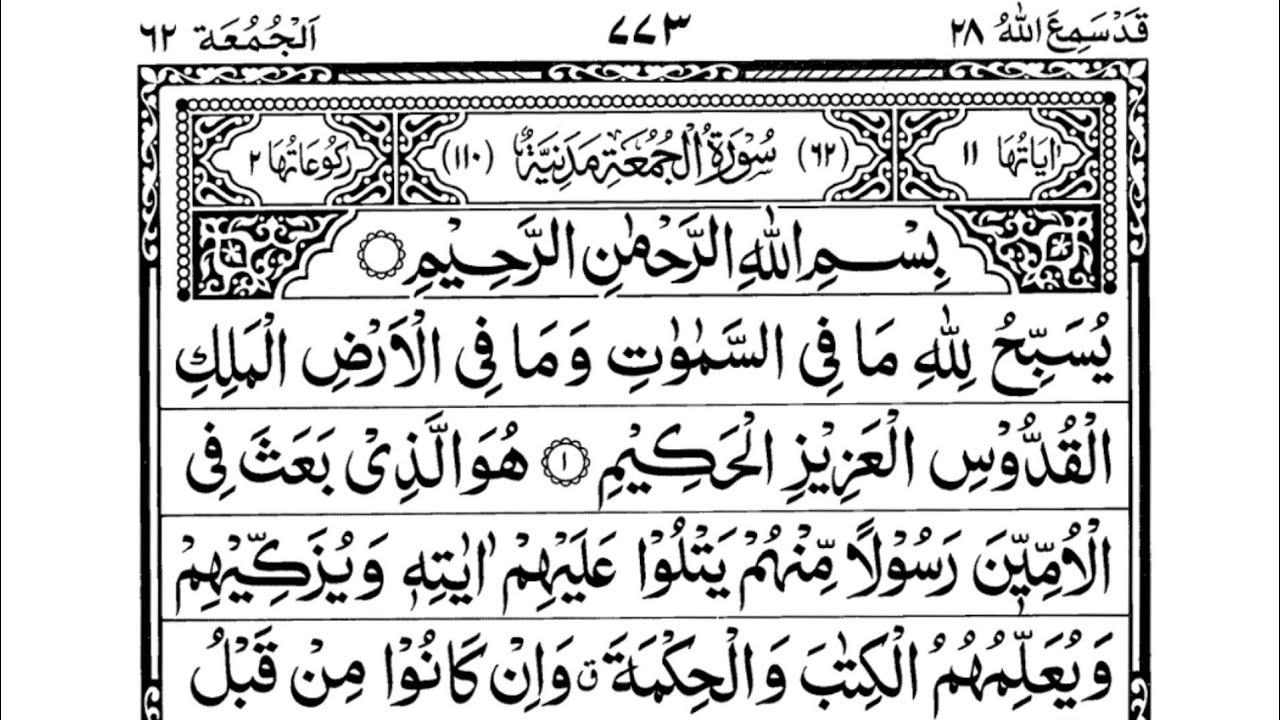 قَدْ سَمِعَ اللهُ ٢٨ ٧٧٣ اَلْجُمُعَة ٦٢
اٰيَاتُهَا ١١ (٦٢) سُوْرَةُ الْجُمُعَةِ مَدَنِيَّةٌ (١١٠) رُكُوْعَاتُهَا ٢
بِسْمِ اللهِ الرَّحْمٰنِ الرَّحِيْمِ
يُسَبِّحُ لِلّٰهِ مَا فِي السَّمٰوٰتِ وَمَا فِي الْاَرْضِ الْمَلِكِ
الْقُدُّوْسِ الْعَزِيْزِ الْحَكِيْمِ ١ هُوَ الَّذِيْ بَعَثَ فِي
الْاُمِّيّٖنَ رَسُوْلًا مِّنْهُمْ يَتْلُوْا عَلَيْهِمْ اٰيٰتِهٖ وَيُزَكِّيْهِمْ
وَيُعَلِّمُهُمُ الْكِتٰبَ وَالْحِكْمَةَ ۗ وَاِنْ كَانُوْا مِنْ قَبْلُ